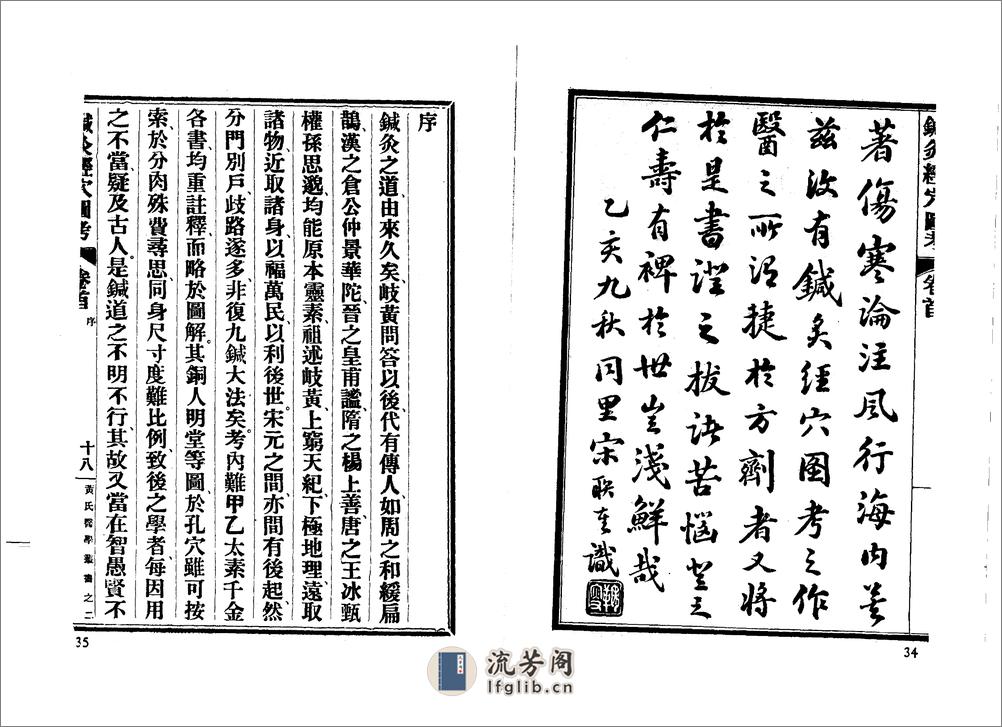 鍼灸經穴圖考 卷首
著傷寒論注風行海内矣
茲復有鍼灸經穴圖考之作
醫之所謂捷於方劑者又將
於是書證之拔諸苦惱登之
仁壽有裨於世豈淺鮮哉
乙亥九秋同里宋聯奎識
34
序
鍼灸之道、由來久矣、岐黃問答以後、代有傳人、如周之和緩扁
鵲、漢之倉公仲景華陀、晉之皇甫謐、隋之楊上善、唐之王冰甄
權孫思邈、均能原本靈素、祖述岐黃、上窮天紀、下極地理、遠取
諸物、近取諸身、以福萬民、以利後世。宋元之間、亦間有後起、然
分門別戶、歧路遂多、非復九鍼大法矣。考內難甲乙太素千金
各書、均重註釋、而略於圖解。其銅人明堂等圖、於孔穴雖可按
索、於分肉殊費尋思、同身尺寸、度難比例、致後之學者、每因用
之不當、疑及古人。是鍼道之不明不行、其故又當在智愚賢不
鍼灸經穴圖考 卷首 序 十八 黃氏醫學叢書之二
35
流芳阁
lfglib.cn